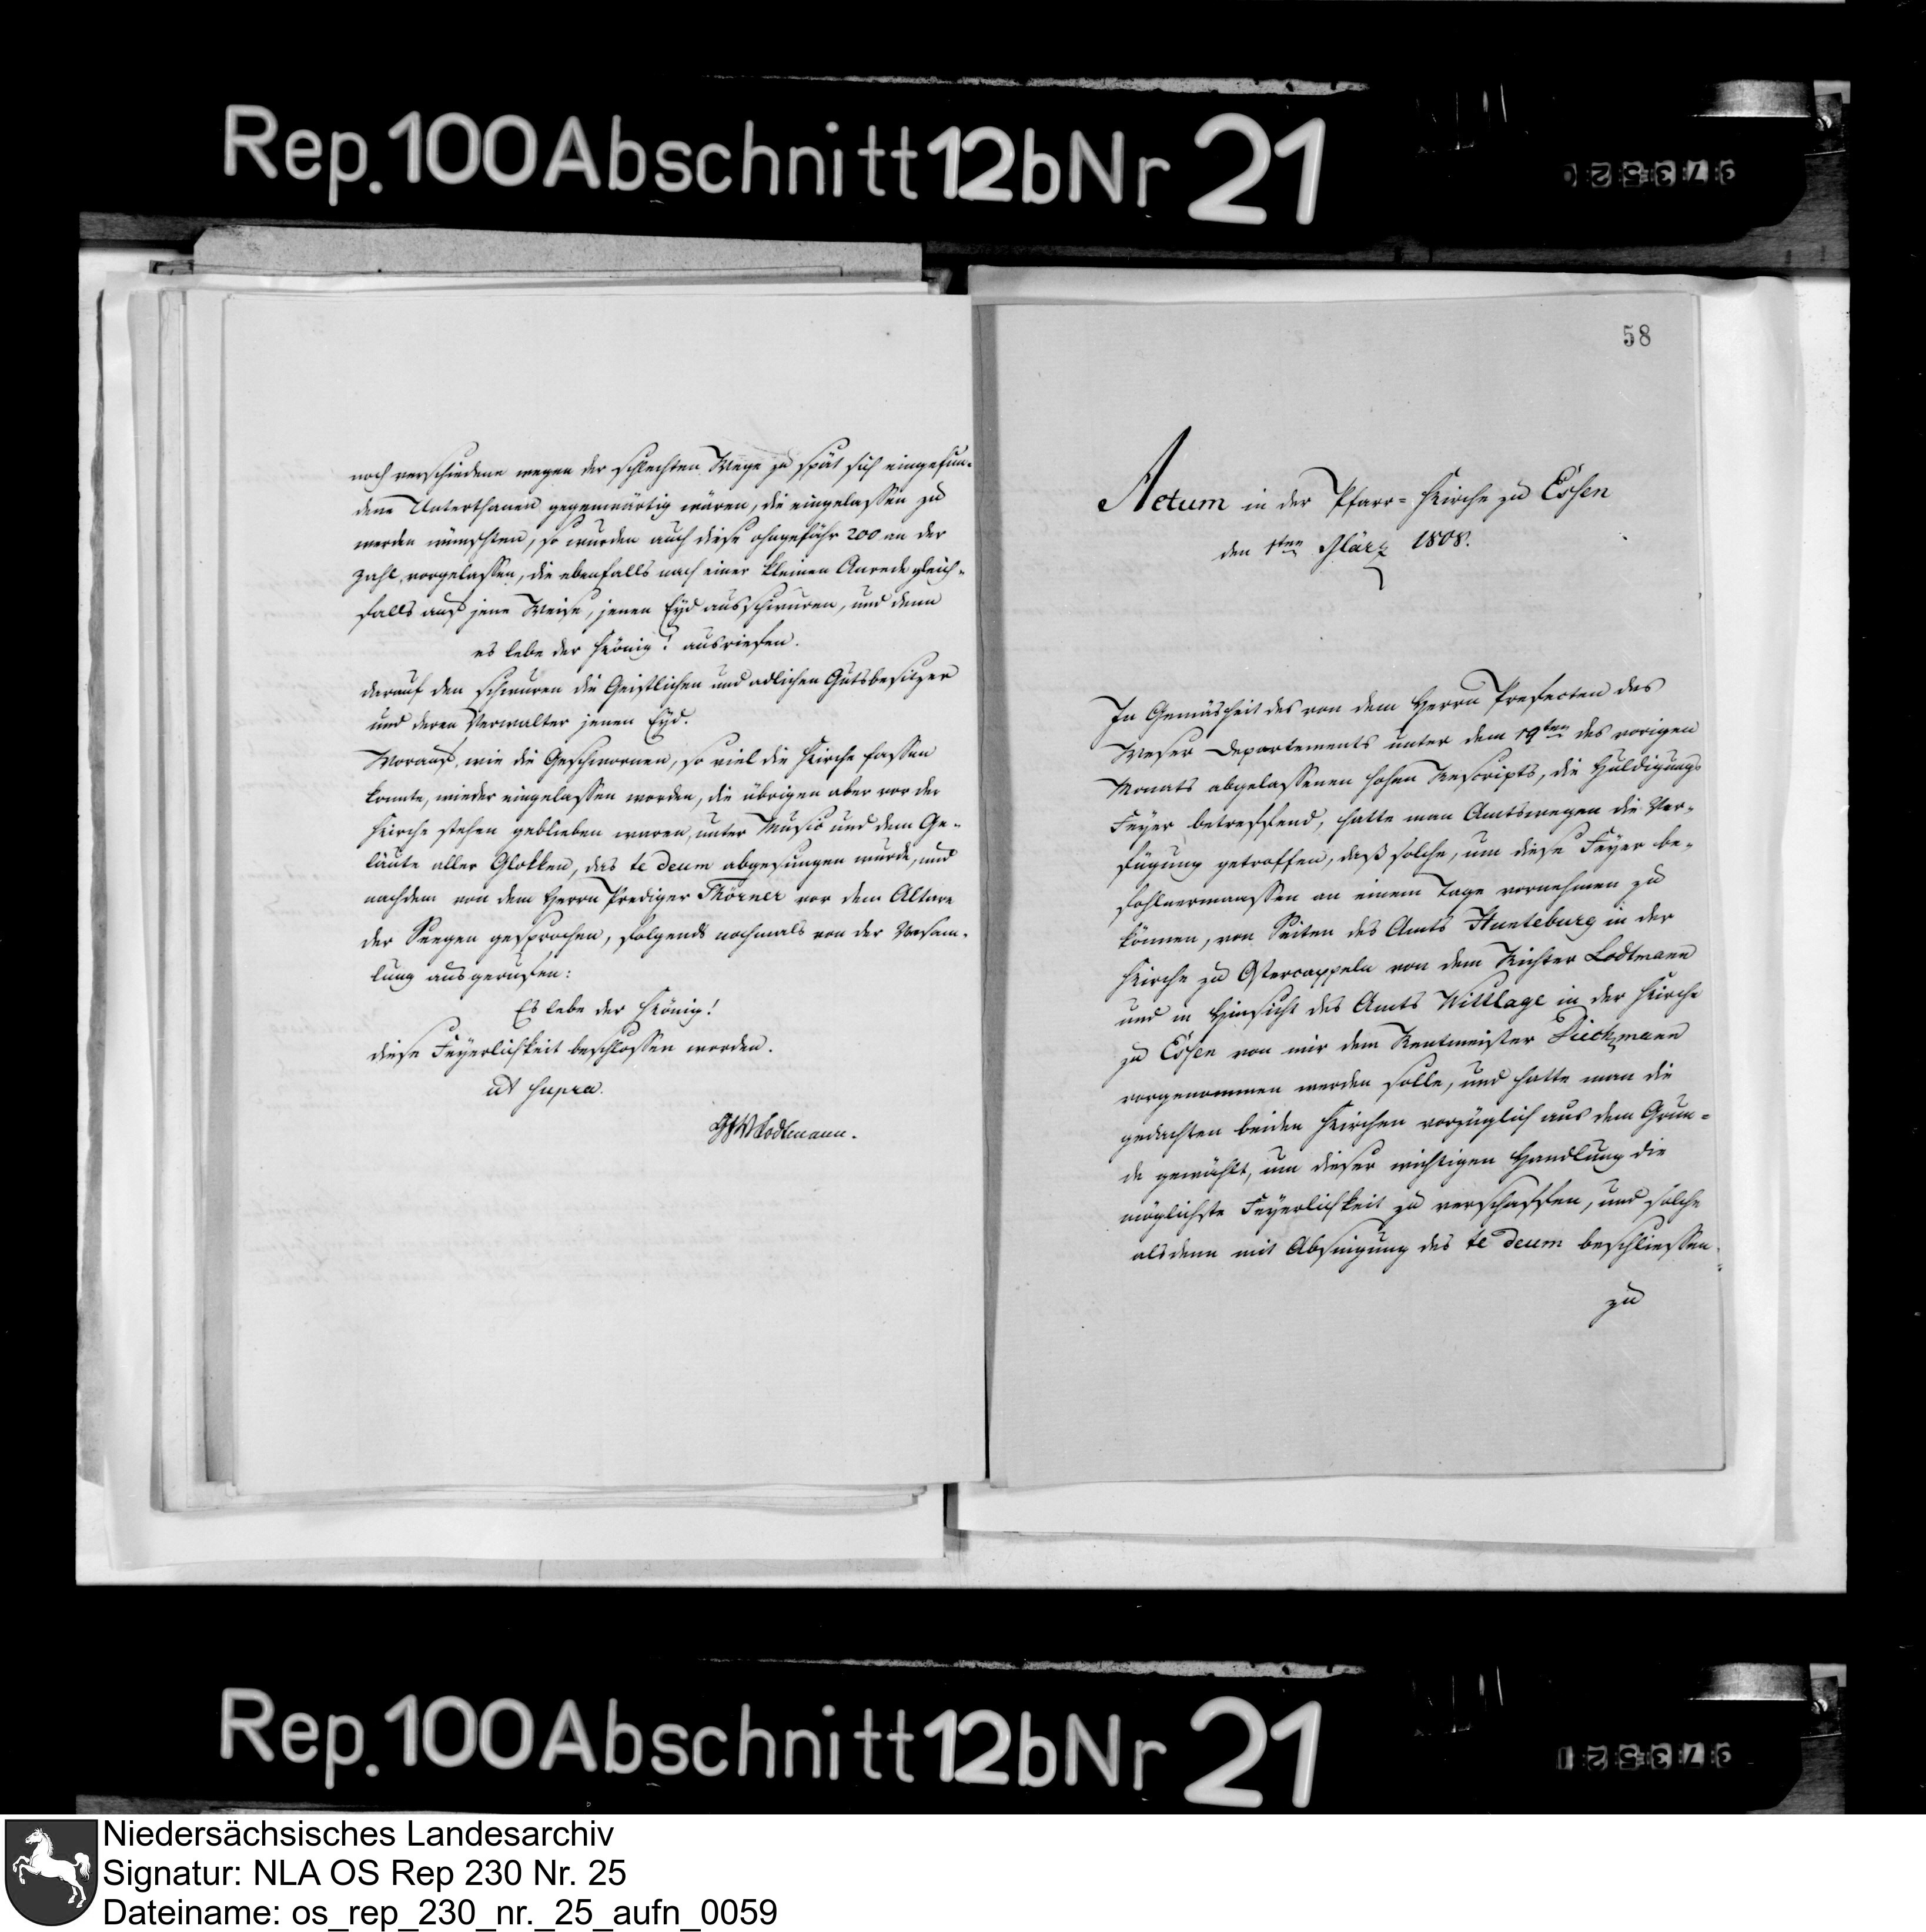 Rep. 100 Abschnitt 12b Nr 21
noch verschiedene wegen der schlechten Wege zu spät sich eingefun-
dene Unterthanen gegenwärtig wären, die eingelassen zu
werden wünschten, so wurden auch diese ohngefähr 200 an der
Zahl, vorgelassen, die ebenfalls nach einer kleinen Anrede gleich-
falls auf jene Weise, jenen Eyd ausschwuren, und denn
es lebe der König! ausriefen.
darauf den schwuren die Geistlichen und adlichen Gutsbesitzer
und deren Verwalter jenen Eyd.
Worauf, wie die Geschwornen, so viel die Kirche fassen
konnte, wieder eingelassen worden, die übrigen aber vor der
Kirche stehen geblieben waren, unter Music und dem Ge-
läute aller Glokken, das te deum abgesungen wurde, und
nachdem von dem Herrn Prediger Thörner vor dem Altare
der Seegen gesprochen, folgends nochmals von der Versam-
lung ausgerufen:
Es lebe der König!
diese Feyerlichkeit beschlossen worden.
ut supra.
Lodtmann.
58
Actum in der Pfarr-Kirche zu Essen
den 1ten März 1808.
In Gemäsheit des von dem Herrn Prefecten des
Weser Departements unter dem 19ten des vorigen
Monats abgelassenen hohen Rescripts, die Huldigungs
Feyer betreffend, hatte man Amtswegen die Ver-
fügung getroffen, daß solche, um diese Feyer be-
fohlnermaassen an einem Tage vornehmen zu
können, von Seiten des Amts Hunteburg in der
Kirche zu Ostercappeln von dem Richter Lodtmann
und in Hinsicht des Amts Wittlage in der Kirche
zu Essen von mir dem Rentmeister Dieckmann
vorgenommen werden solle, und hatte man die
gedachten beiden Kirchen vorzüglich aus dem Grun-
de gewählt, um dieser wichtigen Handlung die
möglichste Feyerlichkeit zu verschaffen, und solche
alsdenn mit Absingung des te deum beschliessen
zu
Rep. 100 Abschnitt 12b Nr 21
Niedersächsisches Landesarchiv
Signatur: NLA OS Rep 230 Nr. 25
Dateiname: os_rep_230_nr._25_aufn_0059